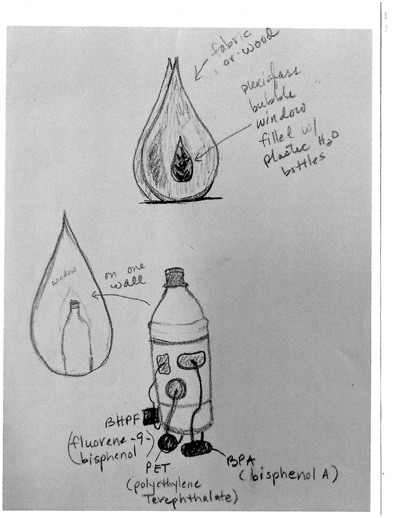 fabric
or wood
plexiglass
bubble
window
filled w/
plastic H2O
bottles
window
on one
wall
BHPF
(fluorene-9-
bisphenol)
PET
(polyethylene
Terephthalate)
BPA
(bisphenol A)